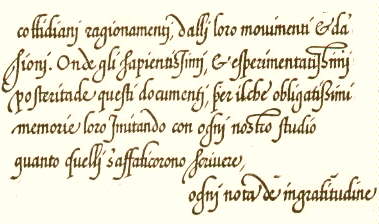 cottidiani ragionamenti, dalli loro mouimenti & da
sioni. Onde gli sapientissimi, & esperimentatissimi
posteritade questi documenti, per ilche obligatissimi
memorie loro Imitando con ogni nostro studio
quanto quelli s'affaticorono scriuere,
ogni nota de ingratitudine